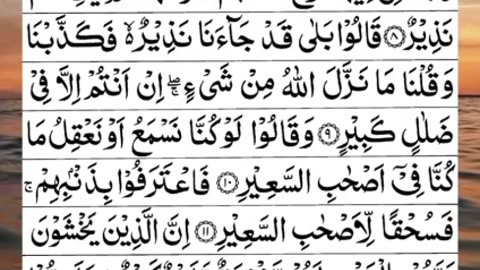 نَذِيْرٌ ۝٨ قَالُوْا بَلٰى قَدْ جَآءَنَا نَذِيْرٌ ۙ فَكَذَّبْنَا
وَ قُلْنَا مَا نَزَّلَ اللّٰهُ مِنْ شَىْءٍ ۖۚ اِنْ اَنْتُمْ اِلَّا فِىْ
ضَلٰلٍ كَبِيْرٍ ۝٩ وَ قَالُوْا لَوْ كُنَّا نَسْمَعُ اَوْ نَعْقِلُ مَا
كُنَّا فِىْۤ اَصْحٰبِ السَّعِيْرِ ۝١٠ فَاعْتَرَفُوْا بِذَنْۢبِهِمْ ۚ
فَسُحْقًا لِّاَصْحٰبِ السَّعِيْرِ ۝١١ اِنَّ الَّذِيْنَ يَخْشَوْنَ